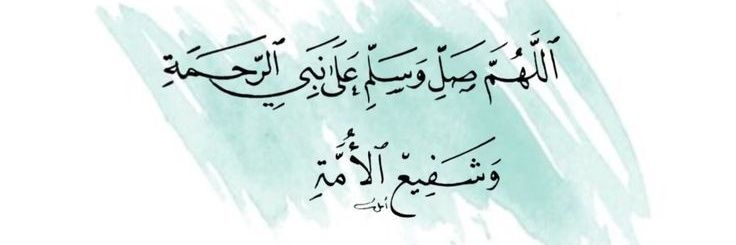 ٱللَّهُمَّ صَلِّ وَسَلِّم عَلَىٰ نَبِي ٱلرَّحمَةِ
وَشَفِيعِ ٱلأُمَّةِ